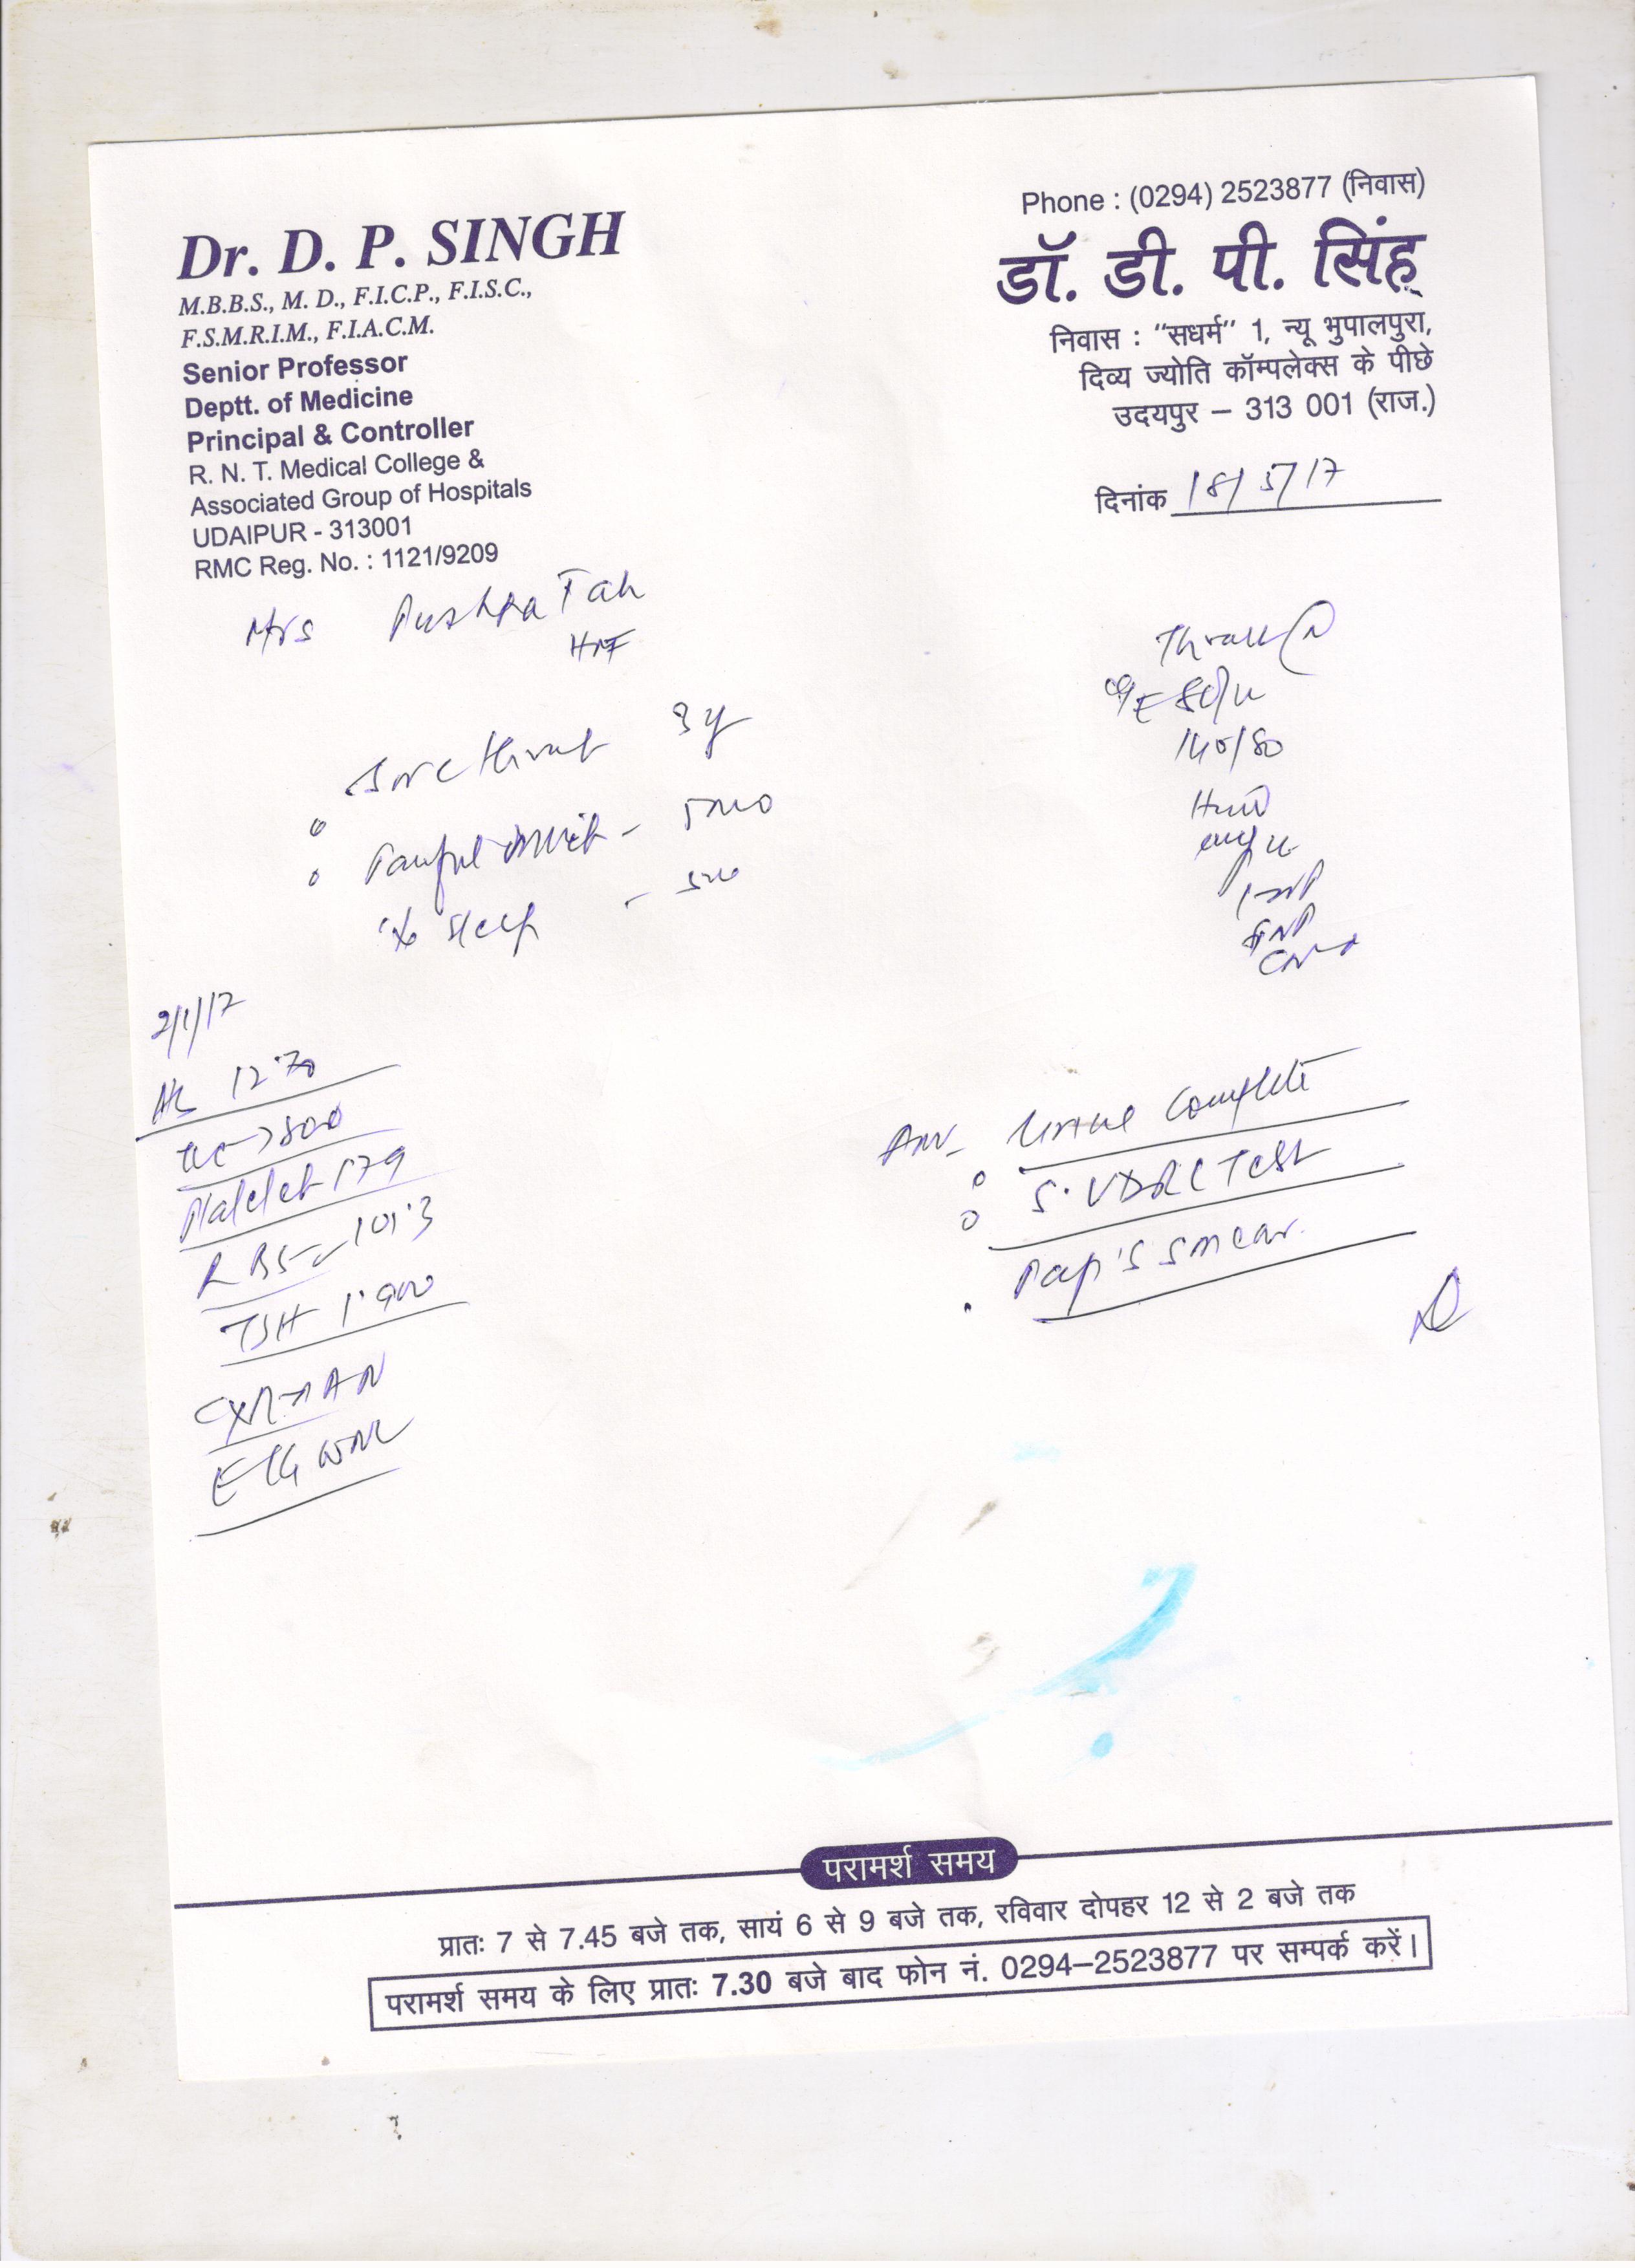 Phone : (0294) 2523877 (निवास)
Dr. D. P. SINGH
M.B.B.S., M. D., F.I.C.P., F.I.S.C.,
F.S.M.R.I.M., F.I.A.C.M.
Senior Professor
Deptt. of Medicine
Principal & Controller
R. N. T. Medical College &
Associated Group of Hospitals
UDAIPUR - 313001
RMC Reg. No. : 1121/9209
डॉ. डी. पी. सिंह
निवास : "सधर्म" 1, न्यू भुपालपुरा,
दिव्य ज्योति कॉम्पलेक्स के पीछे
उदयपुर – 313 001 (राज.)
दिनांक 18/5/17
Mrs Pushpa
Sore throat 3y
Painful - 5mo
sleep -
140/80
2/1/17
Hb 12.70
Platelet 179
RBS 101.3
TSH 1.900
CXR → NAD
ECG WNL
Urine Complete
S. VDRL Test
Pap's smear.
परामर्श समय
प्रातः 7 से 7.45 बजे तक, सायं 6 से 9 बजे तक, रविवार दोपहर 12 से 2 बजे तक
परामर्श समय के लिए प्रातः 7.30 बजे बाद फोन नं. 0294–2523877 पर सम्पर्क करें।